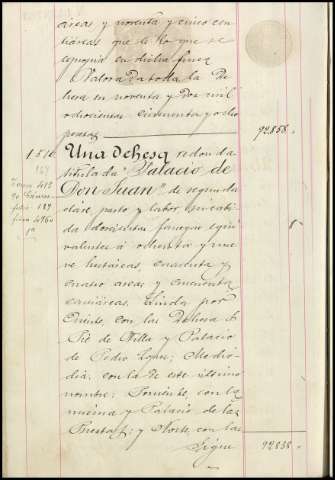 áreas y noventa y cinco cen
tiáreas que de lo que se
compone en dicha finca
Valorada toda la De
hesa en noventa y dos mil
ochocientas cincuenta y ocho
pesetas 92858.
1.516 Una dehesa redonda
titulada "Palacio de
Don Juan" de segunda
clase, pasto y labor,
doscientas fanegas equi
valentes á ochenta y nue
ve hectáreas, cuarenta y
cuatro áreas y cincuenta
centiáreas. Linda por
Oriente, con las Dehesa
Pié de Villa y Palacio
de Pedro Lopez; Medio-
dia, con la de este último
nombre; Poniente, con la
misma y Palacio de las
y Norte, con las
Sigue 92858.